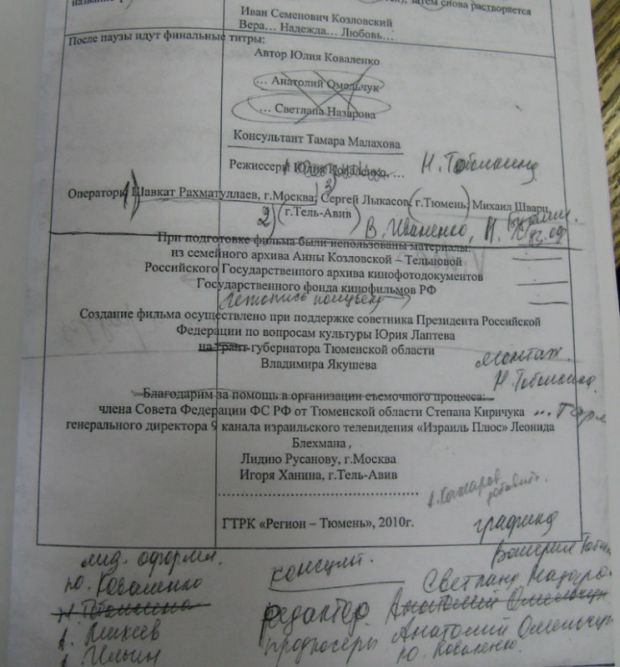 затем снова растворяется
Иван Семенович Козловский
Вера… Надежда… Любовь…
После паузы идут финальные титры:
Автор Юлия Коваленко
… Анатолий Омельчук
… Светлана Назарова
Консультант Тамара Малахова
Режиссер
Н. Тоболкина
Операторы 1) Шавкат Рахматуллаев, г.Москва, 3) Сергей Лыкасов, (г.Тюмень), Михаил Шварц,
2) (г.Тель-Авив)
В. Иваненко, Н.
При подготовке фильма были использованы материалы:
из семейного архива Анны Козловской – Тельновой
Российского Государственного архива кинофотодокументов
Государственного фонда кинофильмов РФ
Летопись
Создание фильма осуществлено при поддержке советника Президента Российской
Федерации по вопросам культуры Юрия Лаптева
на грант губернатора Тюменской области
Владимира Якушева
монтаж.
Н. Тоболкина
Благодарим за помощь в организации съемочного процесса:
члена Совета Федерации ФС РФ от Тюменской области Степана Киричука
генерального директора 9 канала израильского телевидения «Израиль Плюс» Леонида
Блехмана ,
Лидию Русанову, г.Москва
Игоря Ханина, г.Тель-Авив
ГТРК «Регион – Тюмень», 2010г.
графика
Валерия
оформл.
Ю. Коваленко
консульт.
Светлана Назаро
Н. Тоболкина
редактор Анатолий Омельчук
А. Михеев
продюсеры Анатолий Омельчук
А. Ильин
Ю. Коваленко